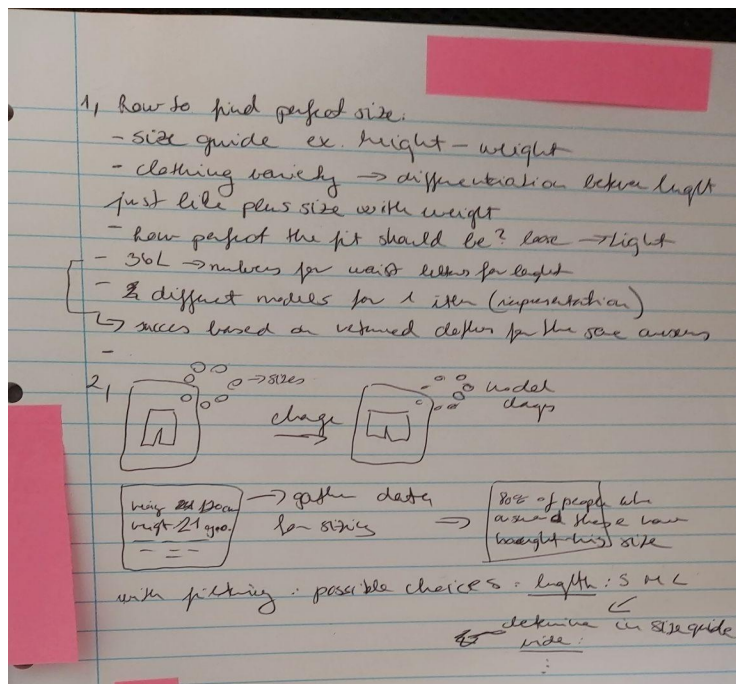 1, how to find perfect size.
- size guide ex. height - weight
- clothing variety → differentiation between lenght
just like plus size with weight
- how perfect the fit should be? lose → tight
- 36L → numbers for waist letters for lenght
- 2 different models for 1 item (representation)
↳ succes based on returned clothes for the same answers
-
2,
→ sizes
change
model
→ gather data
for sizing
80% of people who
answered these have
bought this size
with picking : possible choices : lenght : S M L
determine in size guide
: